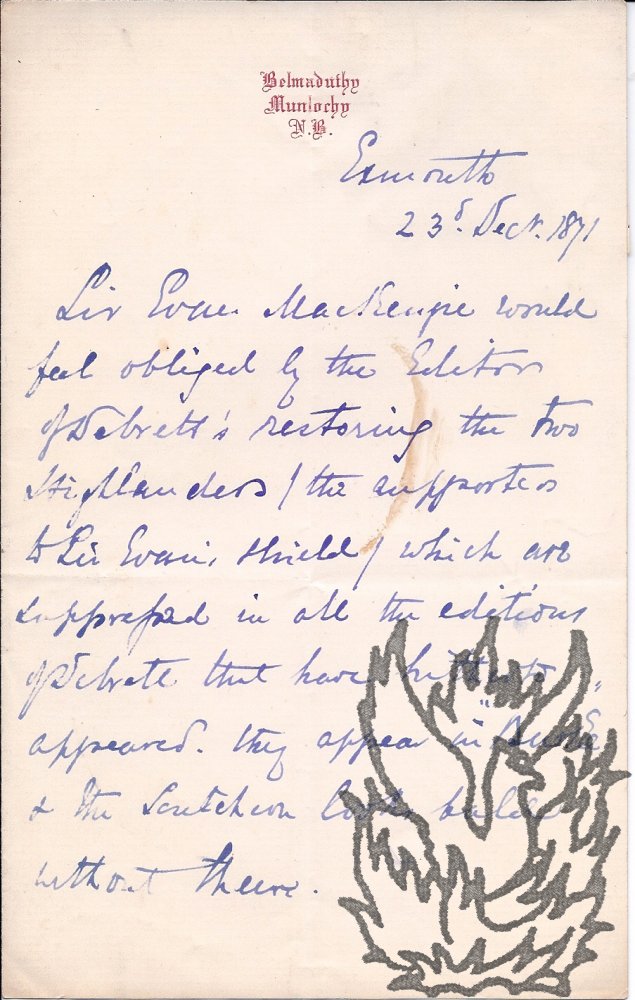 Belmaduthy
Munlochy
N.B.
Exmouth
23d. Decr. 1871
Sir Evan MacKenzie would
feel obliged by the Editor
of Debrett's restoring the two
Highlanders / the supporters
to Sir Evan's shield / which are
suppressed in all the editions
of Debrett that have hitherto
appeared. They appear in "Burke"
& the Scutcheon looks
without them.